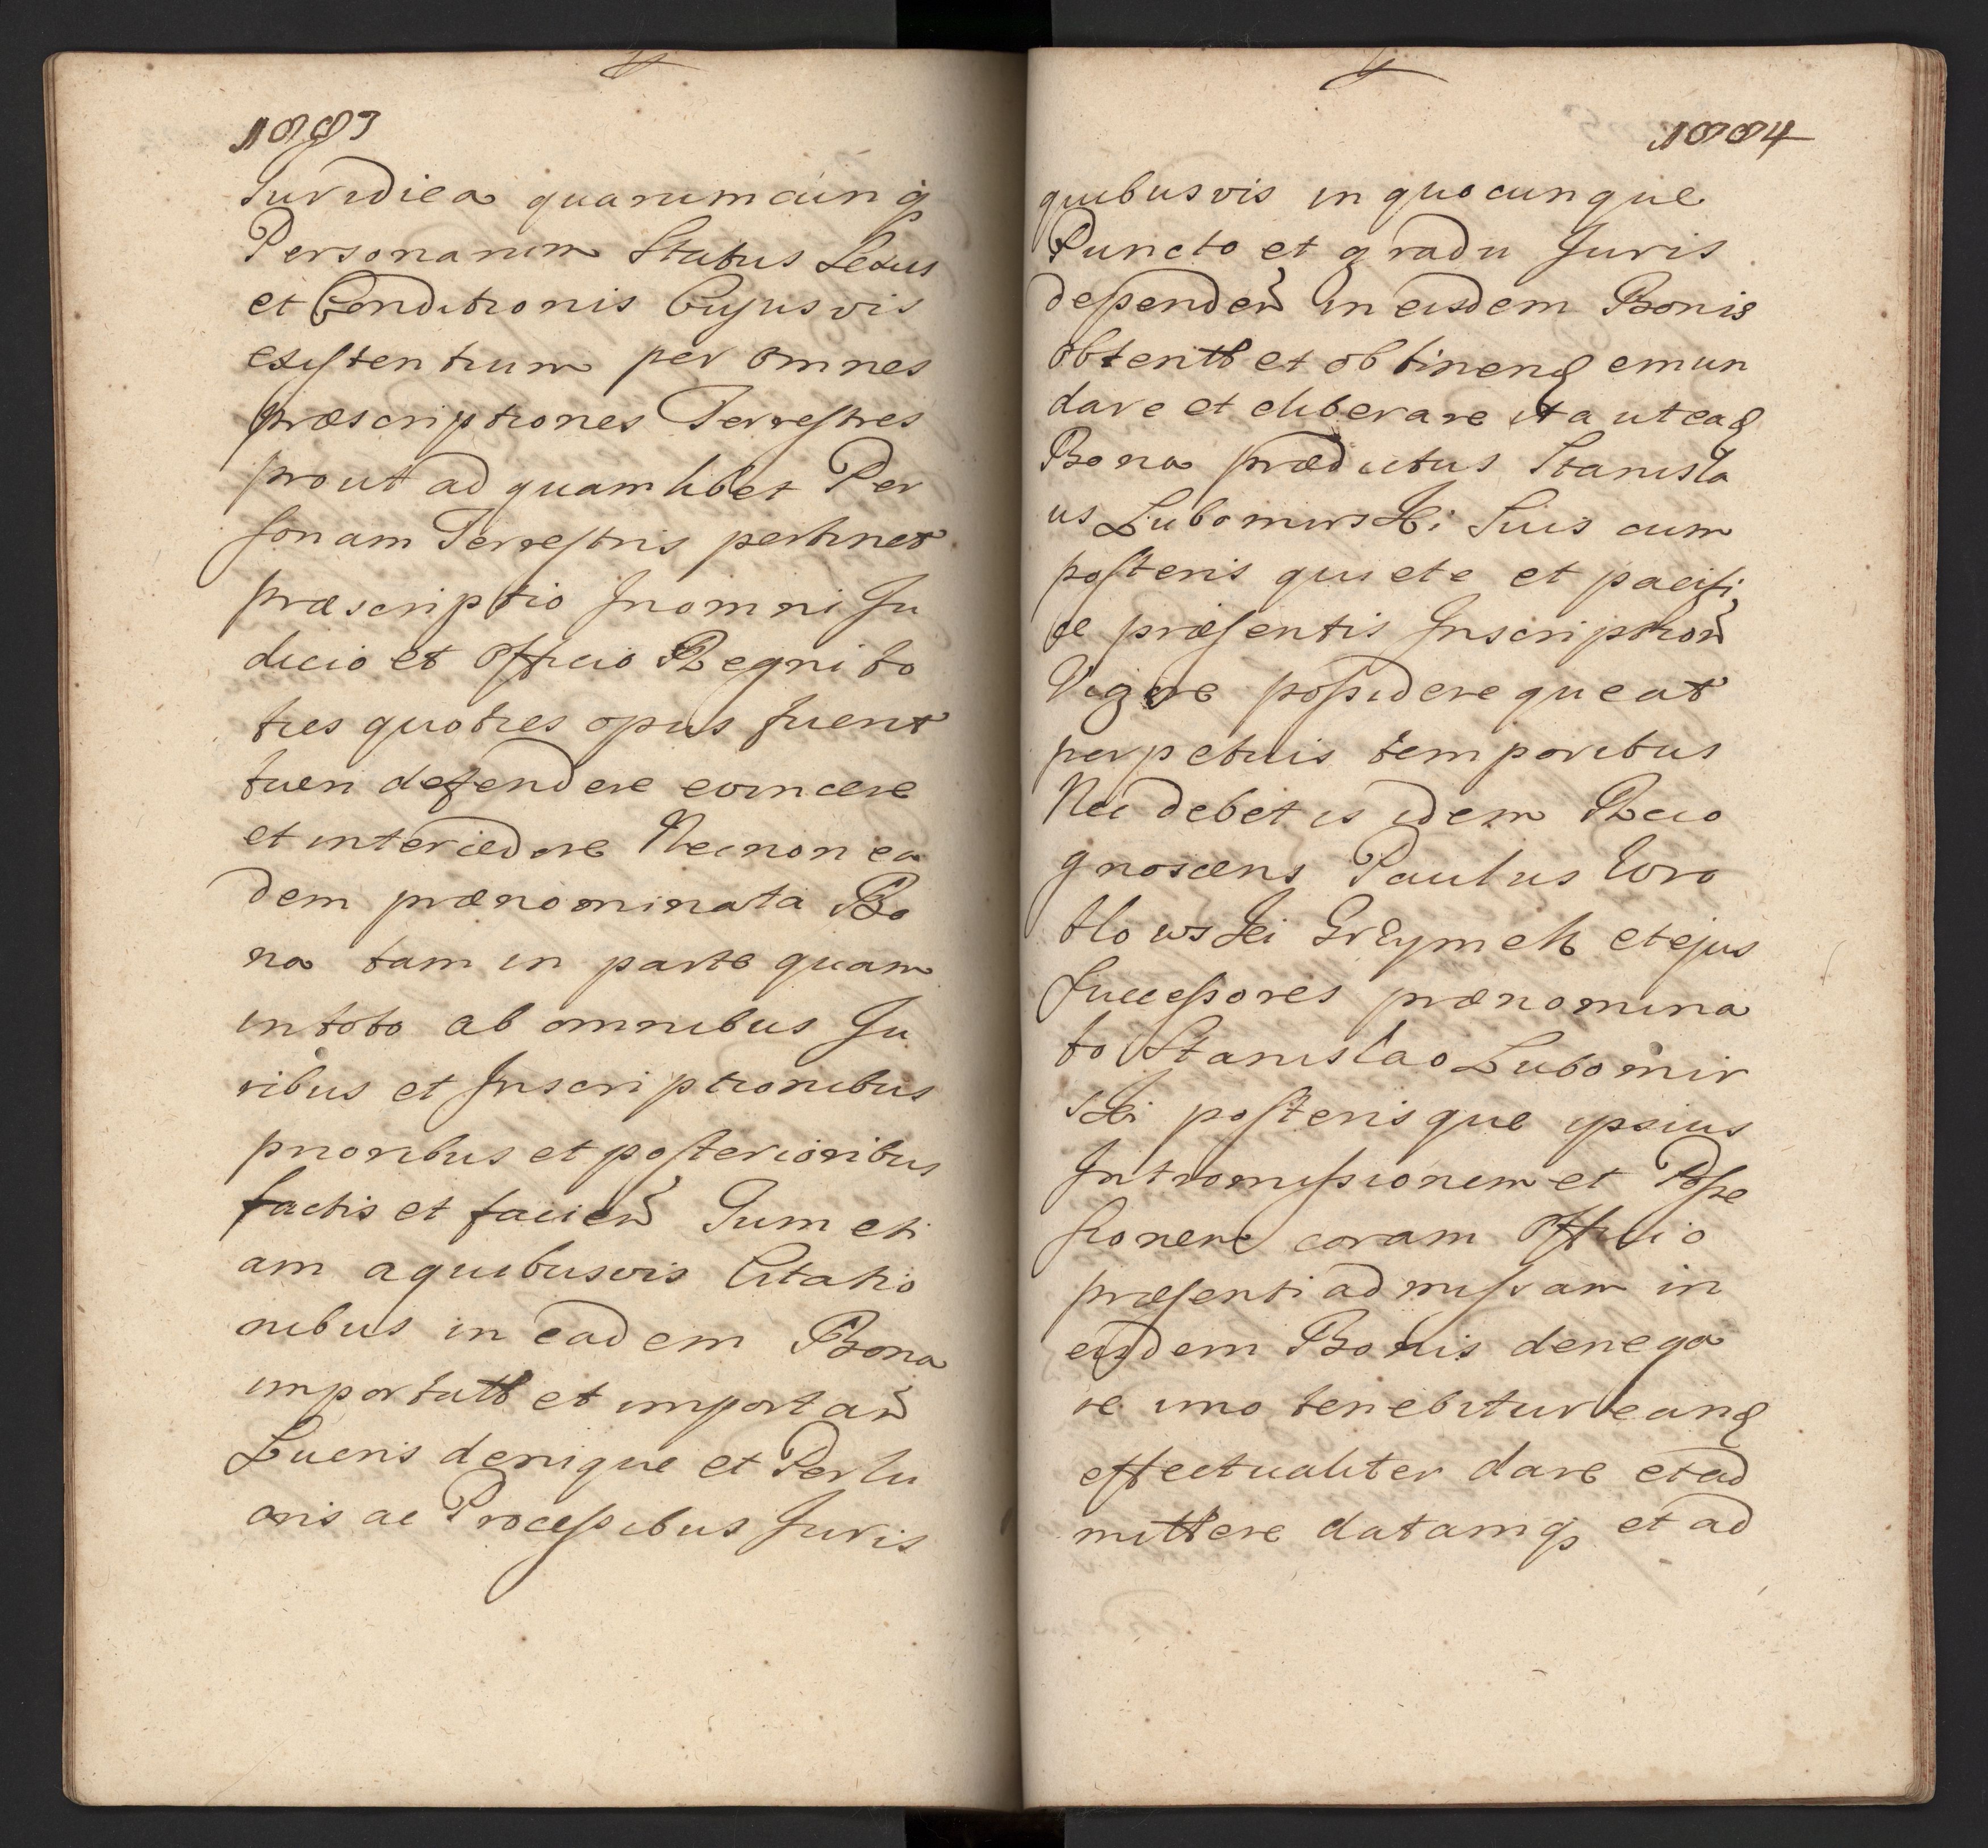 1003
Juridica quarumcunq
Personarum Status Sexus
et Conditionis Cujusvis
existentium per omnes
præscriptiones Terrestres
prout ad quamlibet Per
sonam Terrestris pertinet
præscriptio In omni Ju
dicio et Officio Regni to
ties quoties opus fuerit
tueri defendere evincere
et intercedere Necnon ea
dem prænominata Bo
na tam in parte quam
in toto ab omnibus Ju
ribus et Inscriptionibus
prioribus et posterioribus
factis et facien Tum eti
am a quibusvis Citatio
nibus in eadem Bona
importatt et importan
Lucris denique et Perlu
cris ac Processibus Juris
1004
quibusvis in quocunque
Puncto et gradu Juris
dependen in eisdem Bonis
obtentt et obtinend emun
dare et eliberare ita ut ead
Bona prædictus Stanisla
us Lubomirski Suis cum
posteris quiete et pacifi
ce præsentis Inscription
Vigore possidere queat
perpetuis temporibus
Nec debet is idem Reco
gnoscens Paulus Woro
Grzymek et ejus
Successores prænomina
to Stanislao Lubomir
ski posterisque ipsius
Intromissionem et Posse
ssionem coram Officio
præsenti admissam in
eisdem Bonis denega
re imo tenebitur eand
effectualiter dare et ad
mittere datamq et ad